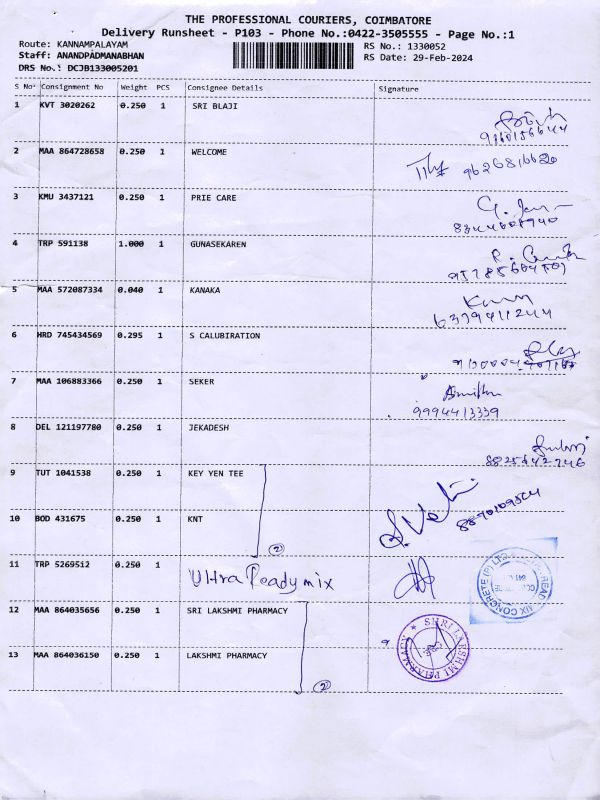 THE PROFESSIONAL COURIERS, COIMBATORE
Delivery Runsheet - P103 - Phone No.:0422-3505555 - Page No.:1
Route: KANNAMPALAYAM
RS No.: 1330052
Staff: ANANDPADMANABHAN
RS Date: 29-Feb-2024
DRS No.: DCJB133005201
S No Consignment No Weight PCS Consignee Details Signature
1 KVT 3020262 0.250 1 SRI BLAJI
2 MAA 864728658 0.250 1 WELCOME
3 KMU 3437121 0.250 1 PRIE CARE
4 TRP 591138 1.000 1 GUNASEKAREN
5 MAA 572087334 0.040 1 KANAKA
6379411244
6 HRD 745434569 0.295 1 S CALUBIRATION
7 MAA 106883366 0.250 1 SEKER
9994413339
8 DEL 121197780 0.250 1 JEKADESH
8825642746
9 TUT 1041538 0.250 1 KEY YEN TEE
10 BOD 431675 0.250 1 KNT
2
11 TRP 5269512 0.250 1 Ultra Ready mix
12 MAA 864035656 0.250 1 SRI LAKSHMI PHARMACY
SHRI LAKSHMI PHARMACY
13 MAA 864036150 0.250 1 LAKSHMI PHARMACY
2